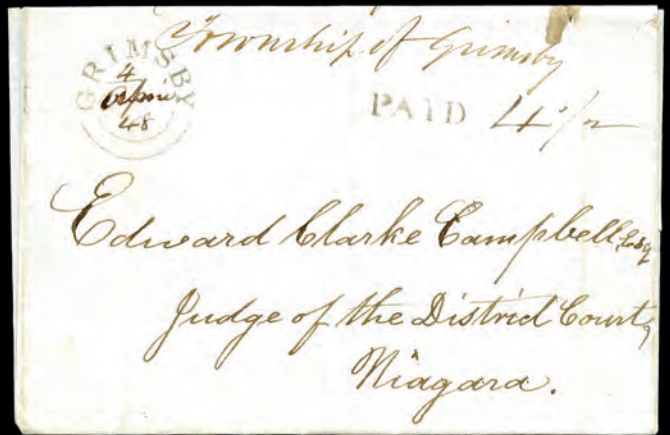 Township of Grimsby
GRIMSBY
4
April
48
PAID 4 1/2
Edward Clarke Campbell Esq
Judge of the District Court,
Niagara.